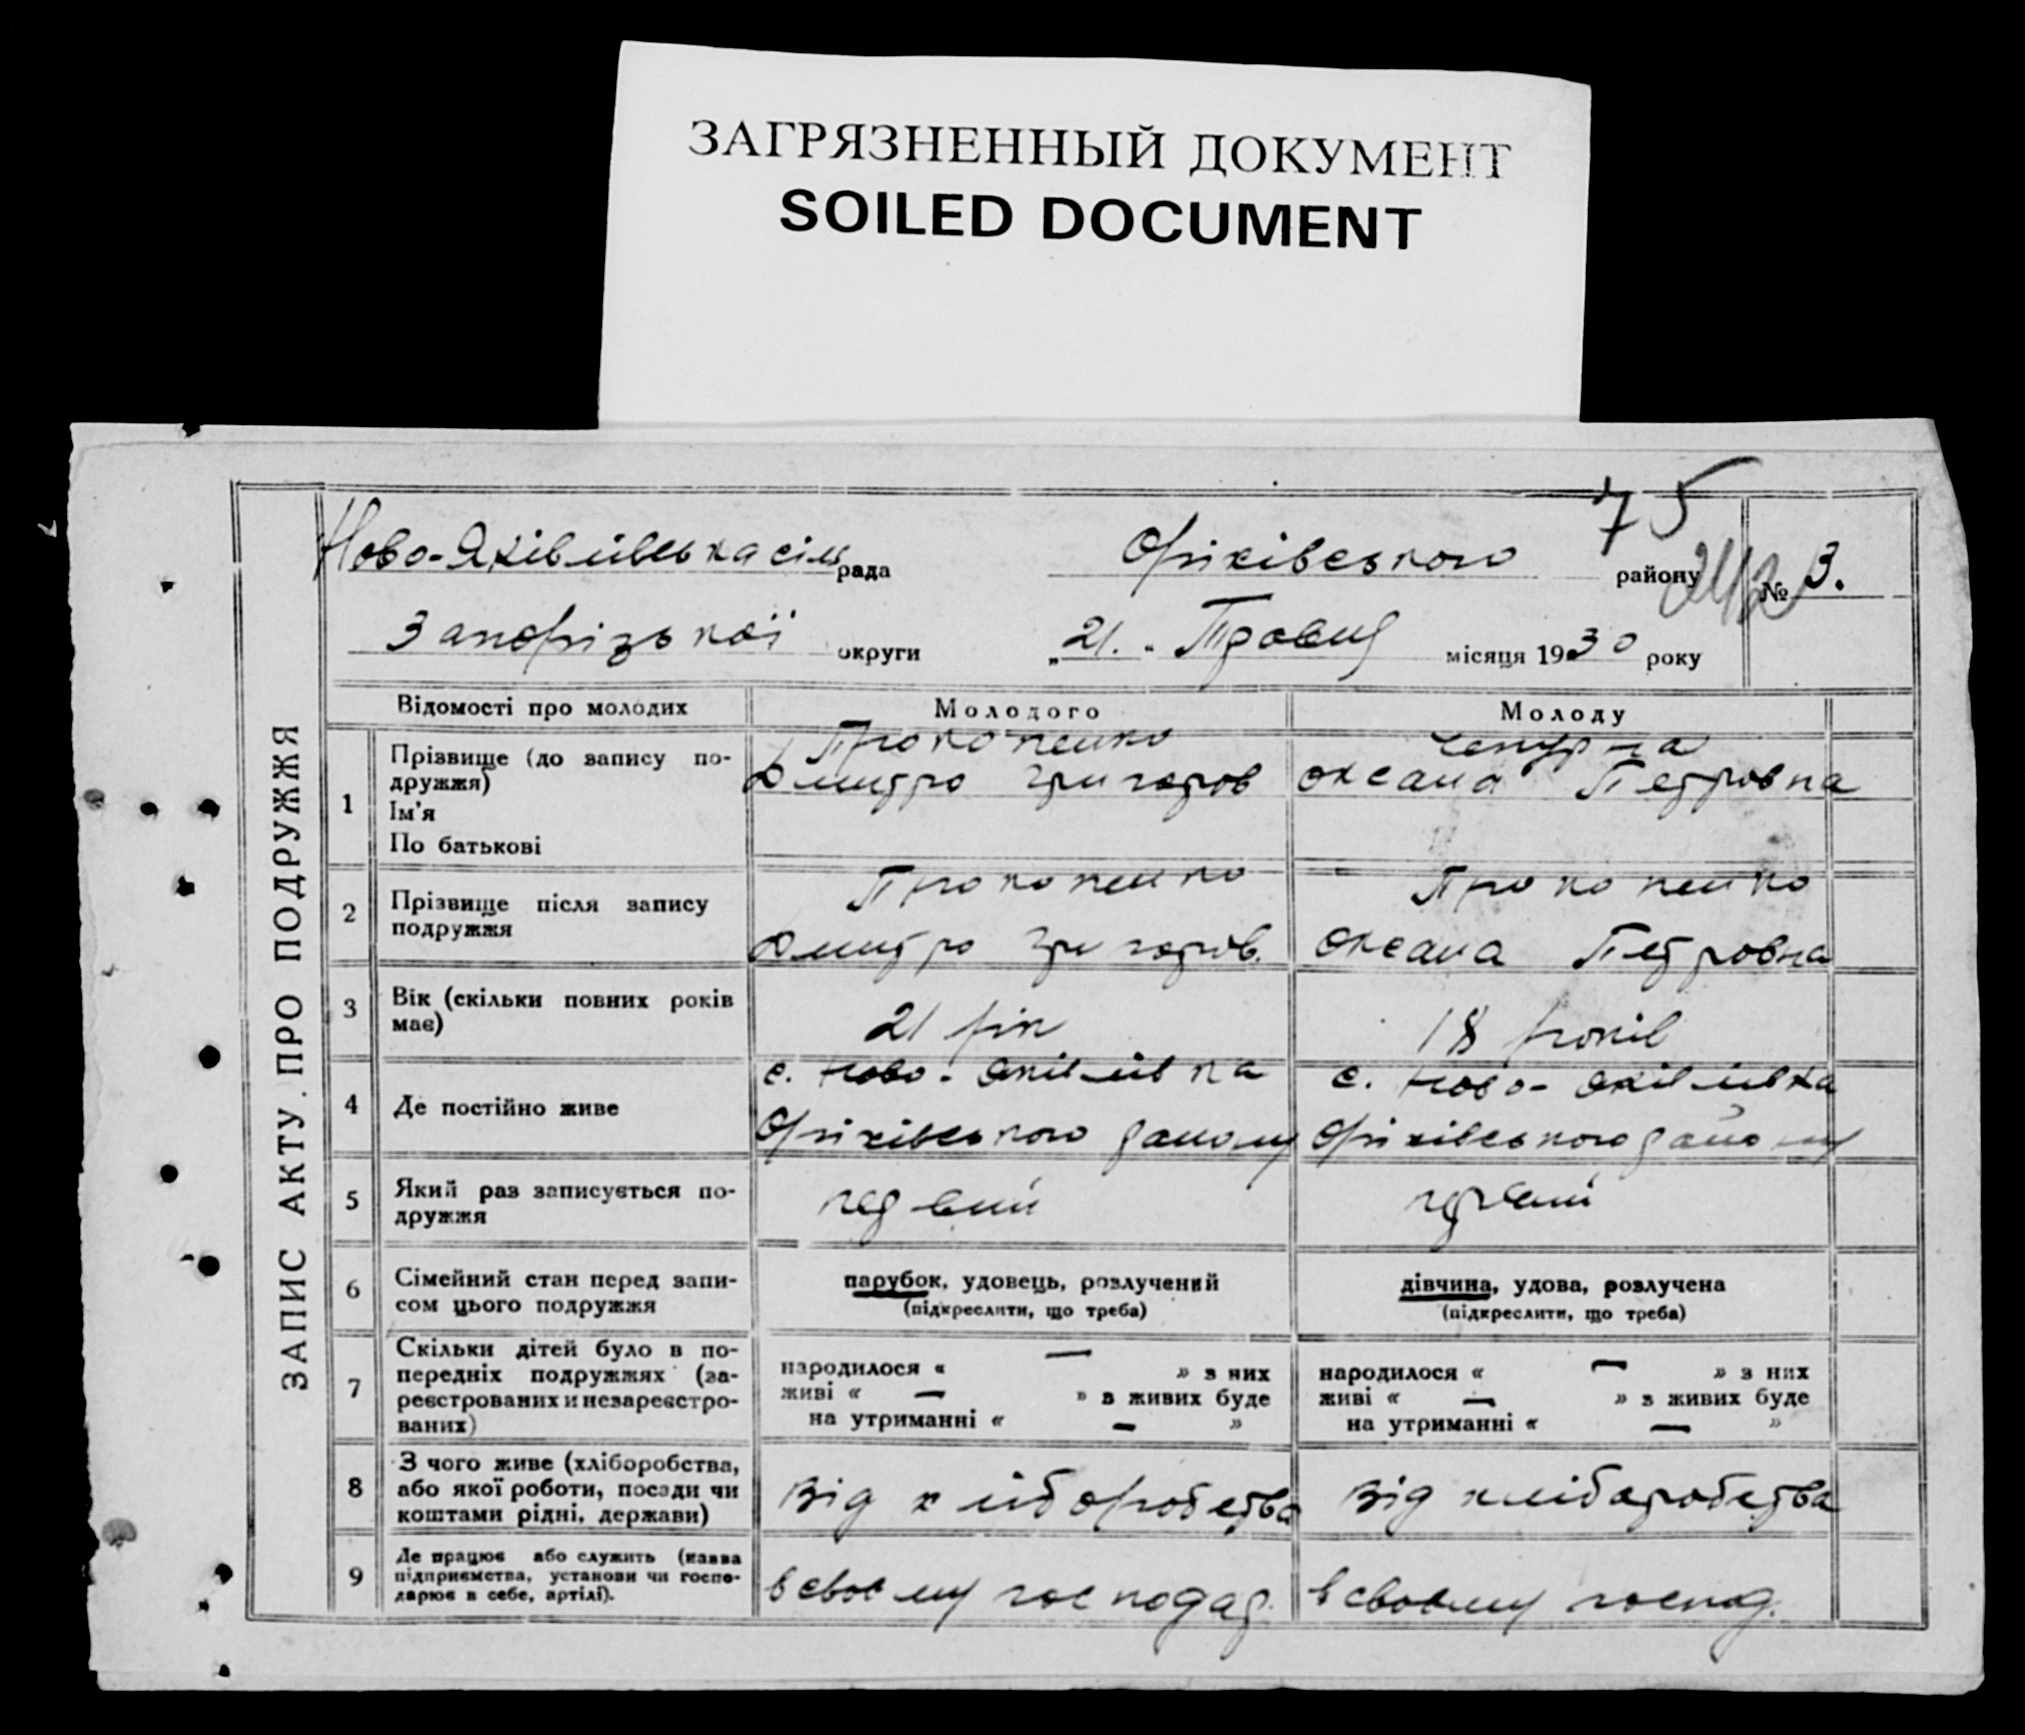 ЗАГРЯЗНЕННЫЙ ДОКУМЕНТ
SOILED DOCUMENT
75
Ново-Яківлівська сіль рада Оріхівського району № 3.
Запорізької округи „21." Травня місяця 1930 року
ЗАПИС АКТУ ПРО ПОДРУЖЖЯ
Відомості про молодих Молодого Молоду
1 Прізвище (до запису по-
дружжя)
Ім'я
По батькові
Прокопенко
Дмитро Григоров
Чепурна
Оксана Петровна
2 Прізвище після запису
подружжя
Прокопенко
Дмитро Григоров.
Прокопенко
Оксана Петровна
3 Вік (скільки повних років
має)
21 рік
18 років
4 Де постійно живе
с. Ново-Яківлівка
Оріхівського району
с. Ново-Яківлівка
Оріхівського району
5 Який раз записується по-
дружжя
первий
первий
6 Сімейний стан перед запи-
сом цього подружжя
парубок, удовець, розлучений
(підкреслити, що треба)
дівчина, удова, розлучена
(підкреслити, що треба)
7 Скільки дітей було в по-
передніх подружжях (за-
реєстрованих и незареєстро-
ваних)
народилося « — » з них
живі « — » з живих буде
на утриманні « — »
народилося « — » з них
живі « — » з живих буде
на утриманні « — »
8 З чого живе (хліборобства,
або якої роботи, посади чи
коштами рідні, держави)
Від хліборобства
Від хліборобства
9 Де працює або служить (назва
підприємства, установи чи госпо-
дарює в себе, артілі).
в своєму господар.
в своєму господ.